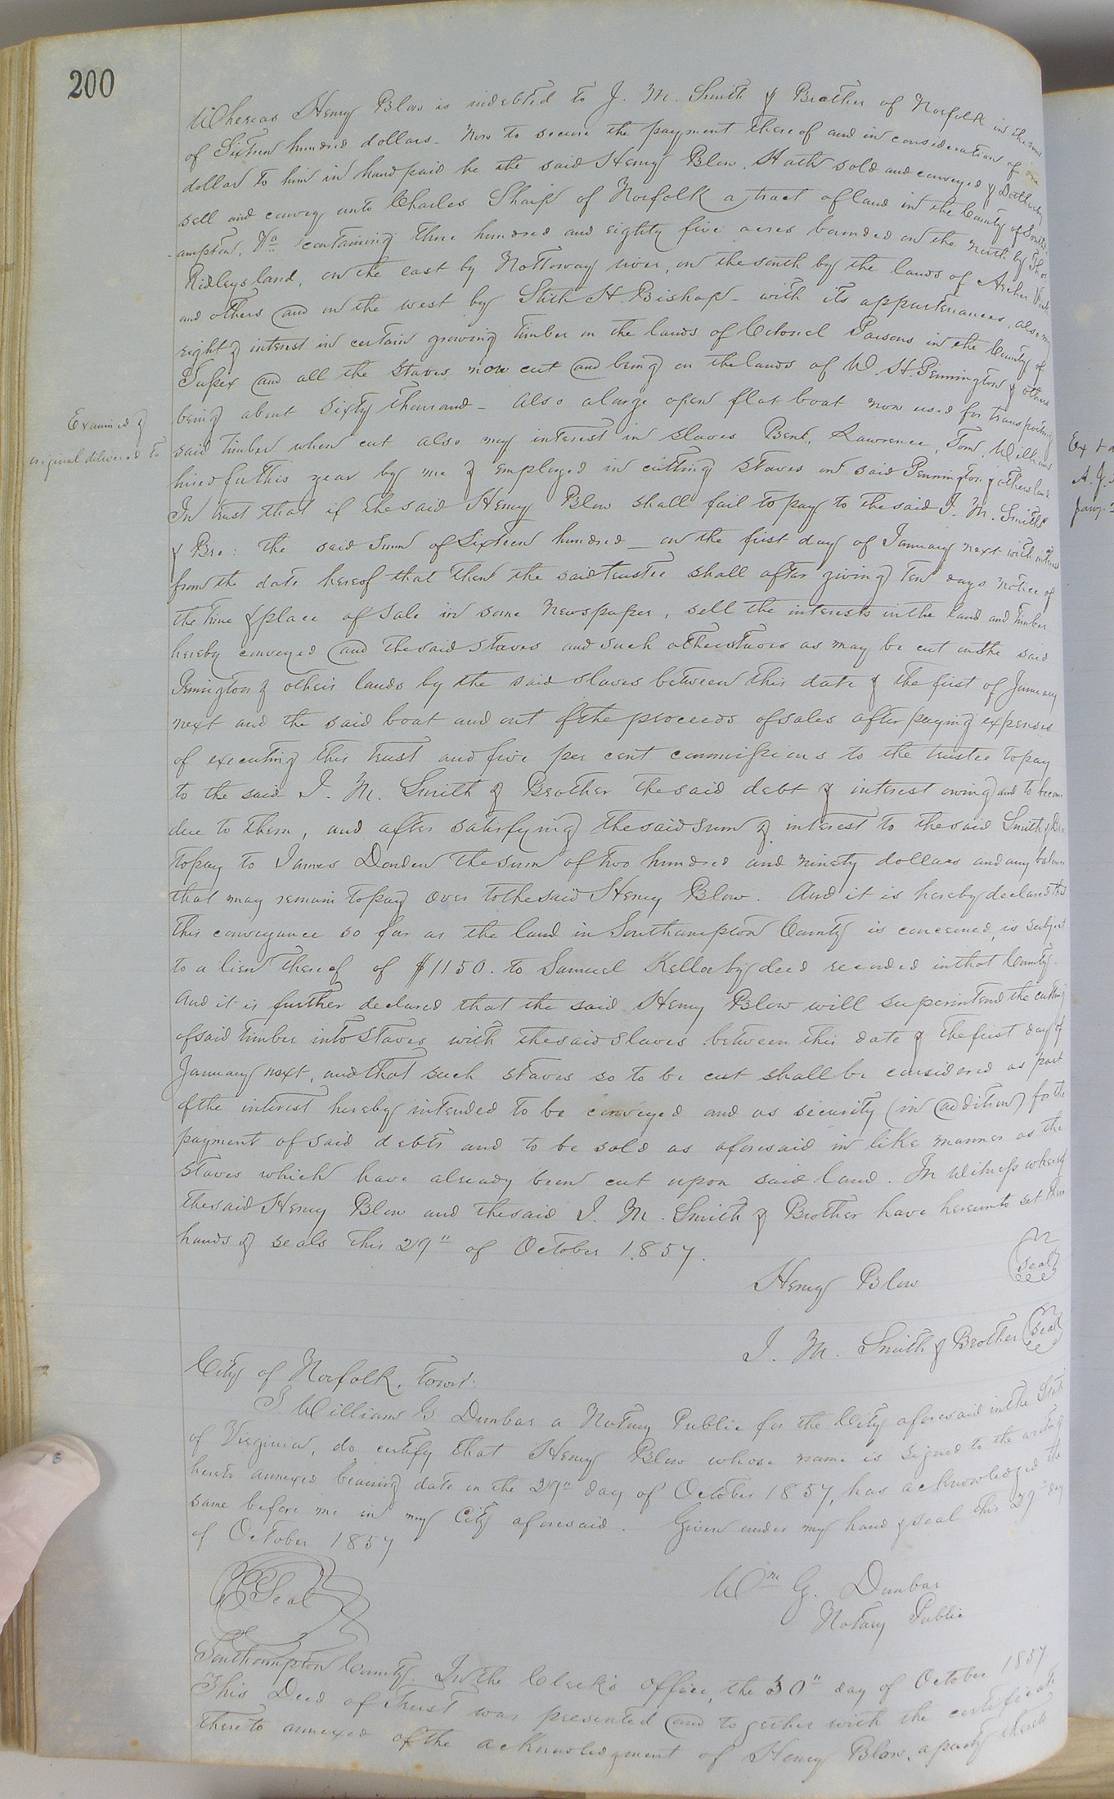 200
Whereas Henry Blow is indebted to J. M. Smith & Brother of Norfolk in the sum
of Sixteen hundred dollars. Now to secure the payment thereof and in consideration of one
dollar to him in hand paid he the said Henry Blow. Hath sold and conveyed & Doth hereby
sell and convey unto Charles Sharp of Norfolk a tract of land in the County of South-
ampton, Va containing three hundred and eighty five acres bounded on the north by Thos
Ridleys land, on the east by Nottoway river, on the south by the lands of Archer
and others and on the west by Stith H Bishop - with its appurtenances, also my
right & interest in certain growing timber on the lands of Colonel Parsons in the County of
Sussex and all the staves now cut and being on the lands of W. H. Pennington & others
being about Sixty thousand - also a large open flat boat now used for transporting
said timber when cut also my interest in slaves Ben, Lawrence, Tom, Williams
hired for this year by me & employed in cutting staves on said Pennington & others land
In trust that if the said Henry Blow shall fail to pay to the said J. M. Smith
& Bro: the said Sum of Sixteen hundred - on the first day of January next with interest
from the date hereof that then the said trustee shall after giving Ten days notice of
the time & place of Sale in some Newspaper, sell the interests in the land and timber
hereby conveyed and the said Staves and such other staves as may be cut on the said
Pennington & others lands by the said slaves between this date & the first of January
next and the said boat and out of the proceeds of sales after paying expenses
of executing this trust and five per cent commissions to the trustee to pay
to the said J. M. Smith & Brother the said debt & interest owing and to become
due to them, and after satisfying the said sum & interest to the said Smith & Bro
to pay to James Darden the sum of two hundred and ninety dollars and any balance
that may remain to pay over to the said Henry Blow. And it is hereby declared that
this conveyance so far as the land in Southampton County is concerned, is subject
to a lien thereof of $1150. to Samuel Kello by deed recorded in that County.
And it is further declared that the said Henry Blow will superintend the cutting
of said timber into Staves with the said slaves between this date & the first day of
January next, and that such staves so to be cut shall be considered as part
of the interest hereby intended to be conveyed and as security (in addition) for the
payment of said debts and to be sold as aforesaid in like manner as the
Staves which have already been cut upon said land. In witness whereof
the said Henry Blow and the said J. M. Smith & Brother have hereunto set their
hands & seals this 29" of October 1857.
Henry Blow (seal)
J. M. Smith & Brother (seal)
Examined &
original delivered to
Ex & d
City of Norfolk, towit:
I William G Dunbar a Notary Public for the City aforesaid in the State
of Virginia, do certify that Henry Blow whose name is signed to the writing
hereto annexed bearing date on the 29" day of October 1857, has acknowledged the
same before me in my City aforesaid. Given under my hand & seal this 29" day
of October 1857
Seal
Wm G. Dunbar
Notary Public
Southampton County. In the Clerk's Office, the 30" day of October 1857
This Deed of Trust was presented and together with the certificate
thereto annexed of the acknowledgment of Henry Blow, a party thereto